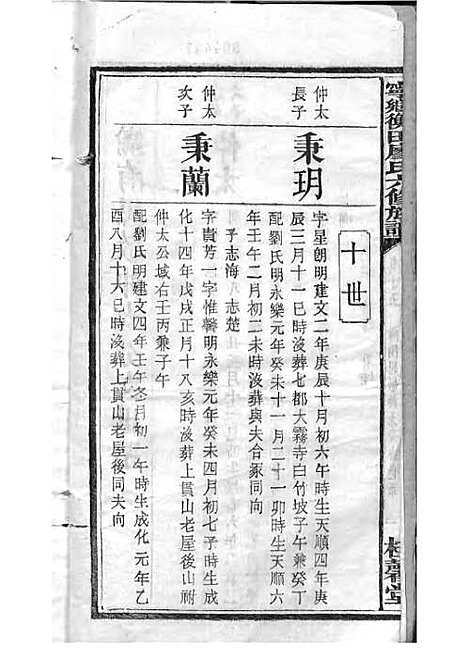 寧鄉衡田廖氏六修族譜
十世
仲太
長子
秉玥
字星朗明建文二年庚辰十月初六午時生天順四年庚
辰三月十一巳時沒葬七都大霧寺白竹坡子午兼癸丁
配劉氏明永樂元年癸未十一月二十一卯時生天順六
年壬午二月初二未時沒葬與夫合冢同向
子志海 志楚
仲太
次子
秉蘭
字貴芳一字惟馨明永樂元年癸未四月初七子時生成
化十四年戊戌正月十八亥時沒葬上貫山老屋後山祔
仲太公域右壬丙兼子午
配劉氏明建文四年壬午冬月初一午時生成化元年乙
酉八月十六巳時沒葬上貫山老屋後同夫向
桂馨堂